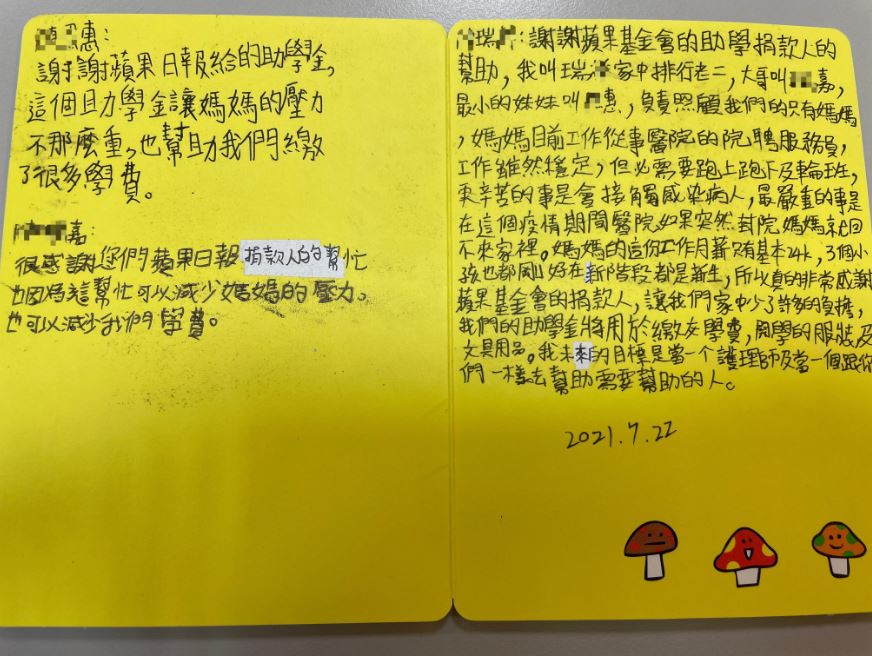 惠:
謝謝蘋果日報給的助學金,
這個助學金讓媽媽的壓力
不那麼重,也幫助我們繳
了很多學費。
嘉:
很感謝您們蘋果日報捐款人的幫忙
因為這幫忙可以減少媽媽的壓力。
也可以減少我們學費。
瑞:謝謝蘋果基金會的助學捐款人的
幫助,我叫瑞 家中排行老二,大哥叫 嘉,
最小的妹妹叫 惠,負責照顧我們的只有媽媽
,媽媽目前工作從事醫院的院聘服務員,
工作雖然穩定,但必需要跑上跑下及輪班,
更辛苦的事是會接觸感染病人,最嚴重的事是
在這個疫情期間醫院如果突然封院媽媽就回
不來家裡。媽媽的這份工作月薪只有基本24k,3個小
孩也都剛好在新階段都是新生,所以真的非常感謝
蘋果基金會的捐款人,讓我們家中少了許多的負擔,
我們的助學金將用於繳交學費,開學的服裝及
文具用品。我未來的目標是當一個護理師及當一個跟你
們一樣去幫助需要幫助的人。
2021.7.22